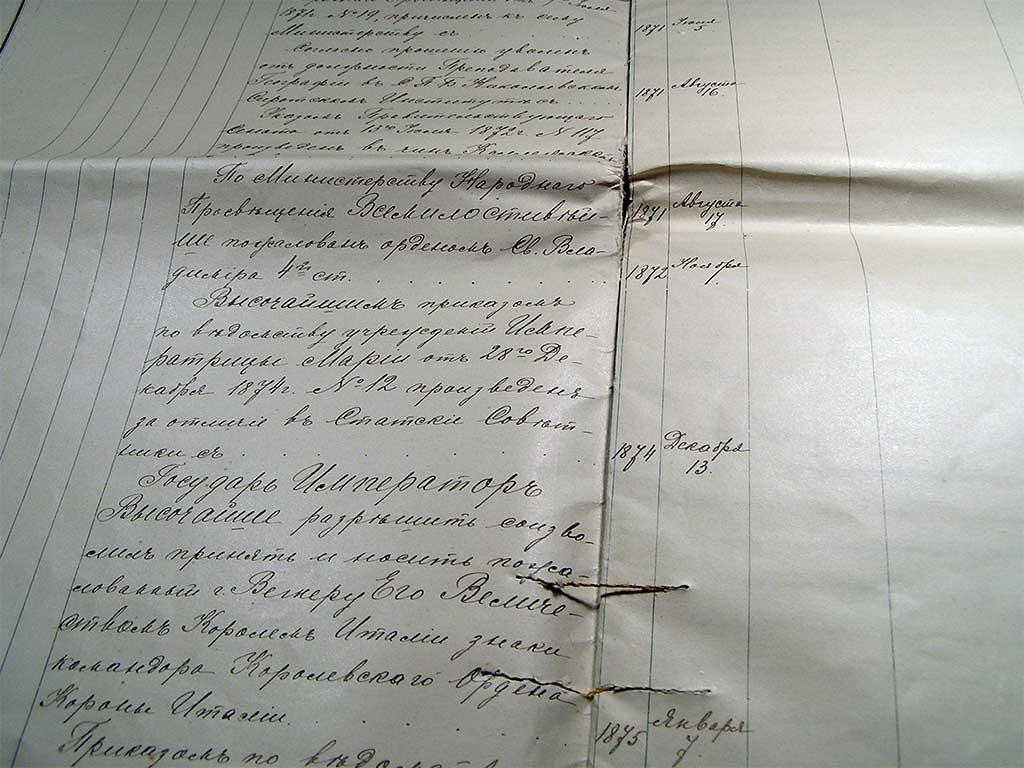 1871 № 19, причисленъ къ сему
Министерству съ 1871 Іюня 5
Согласно прошенію уволенъ
отъ должности Преподавателя
Географіи въ С.П.Б. Николаевскомъ
Сиротскомъ Институтѣ съ 1871 Августа 16.
Указомъ Правительствующаго
Сената отъ 13го Іюля 1872г. № 117
произведенъ въ чинъ 1871 Августа 17.
По Министерству Народнаго
Просвѣщенія Всемилостивѣй-
ше пожалованъ орденомъ Св. Вла-
диміра 4й ст. 1872 Ноября
Высочайшимъ приказомъ
по вѣдомству учрежденій Импе-
ратрицы Маріи отъ 28го Де-
кабря 1874г. № 12 произведенъ
за отличіе въ Статскіе Совѣт-
ники съ 1874 Декабря 13.
Государь Императоръ
Высочайше разрѣшить соизво-
лилъ принять и носить пожа-
лованный г. Вегнеру Его Величе-
ствомъ Королемъ Италіи знаки
командора Королевскаго Ордена
Короны Италіи 1875 Января 7.
Приказомъ по вѣдомст